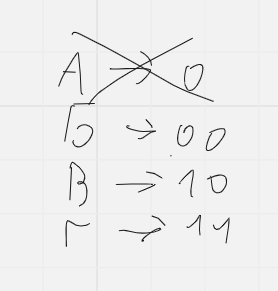 A → 0
Б → 00
В → 10
Г → 11